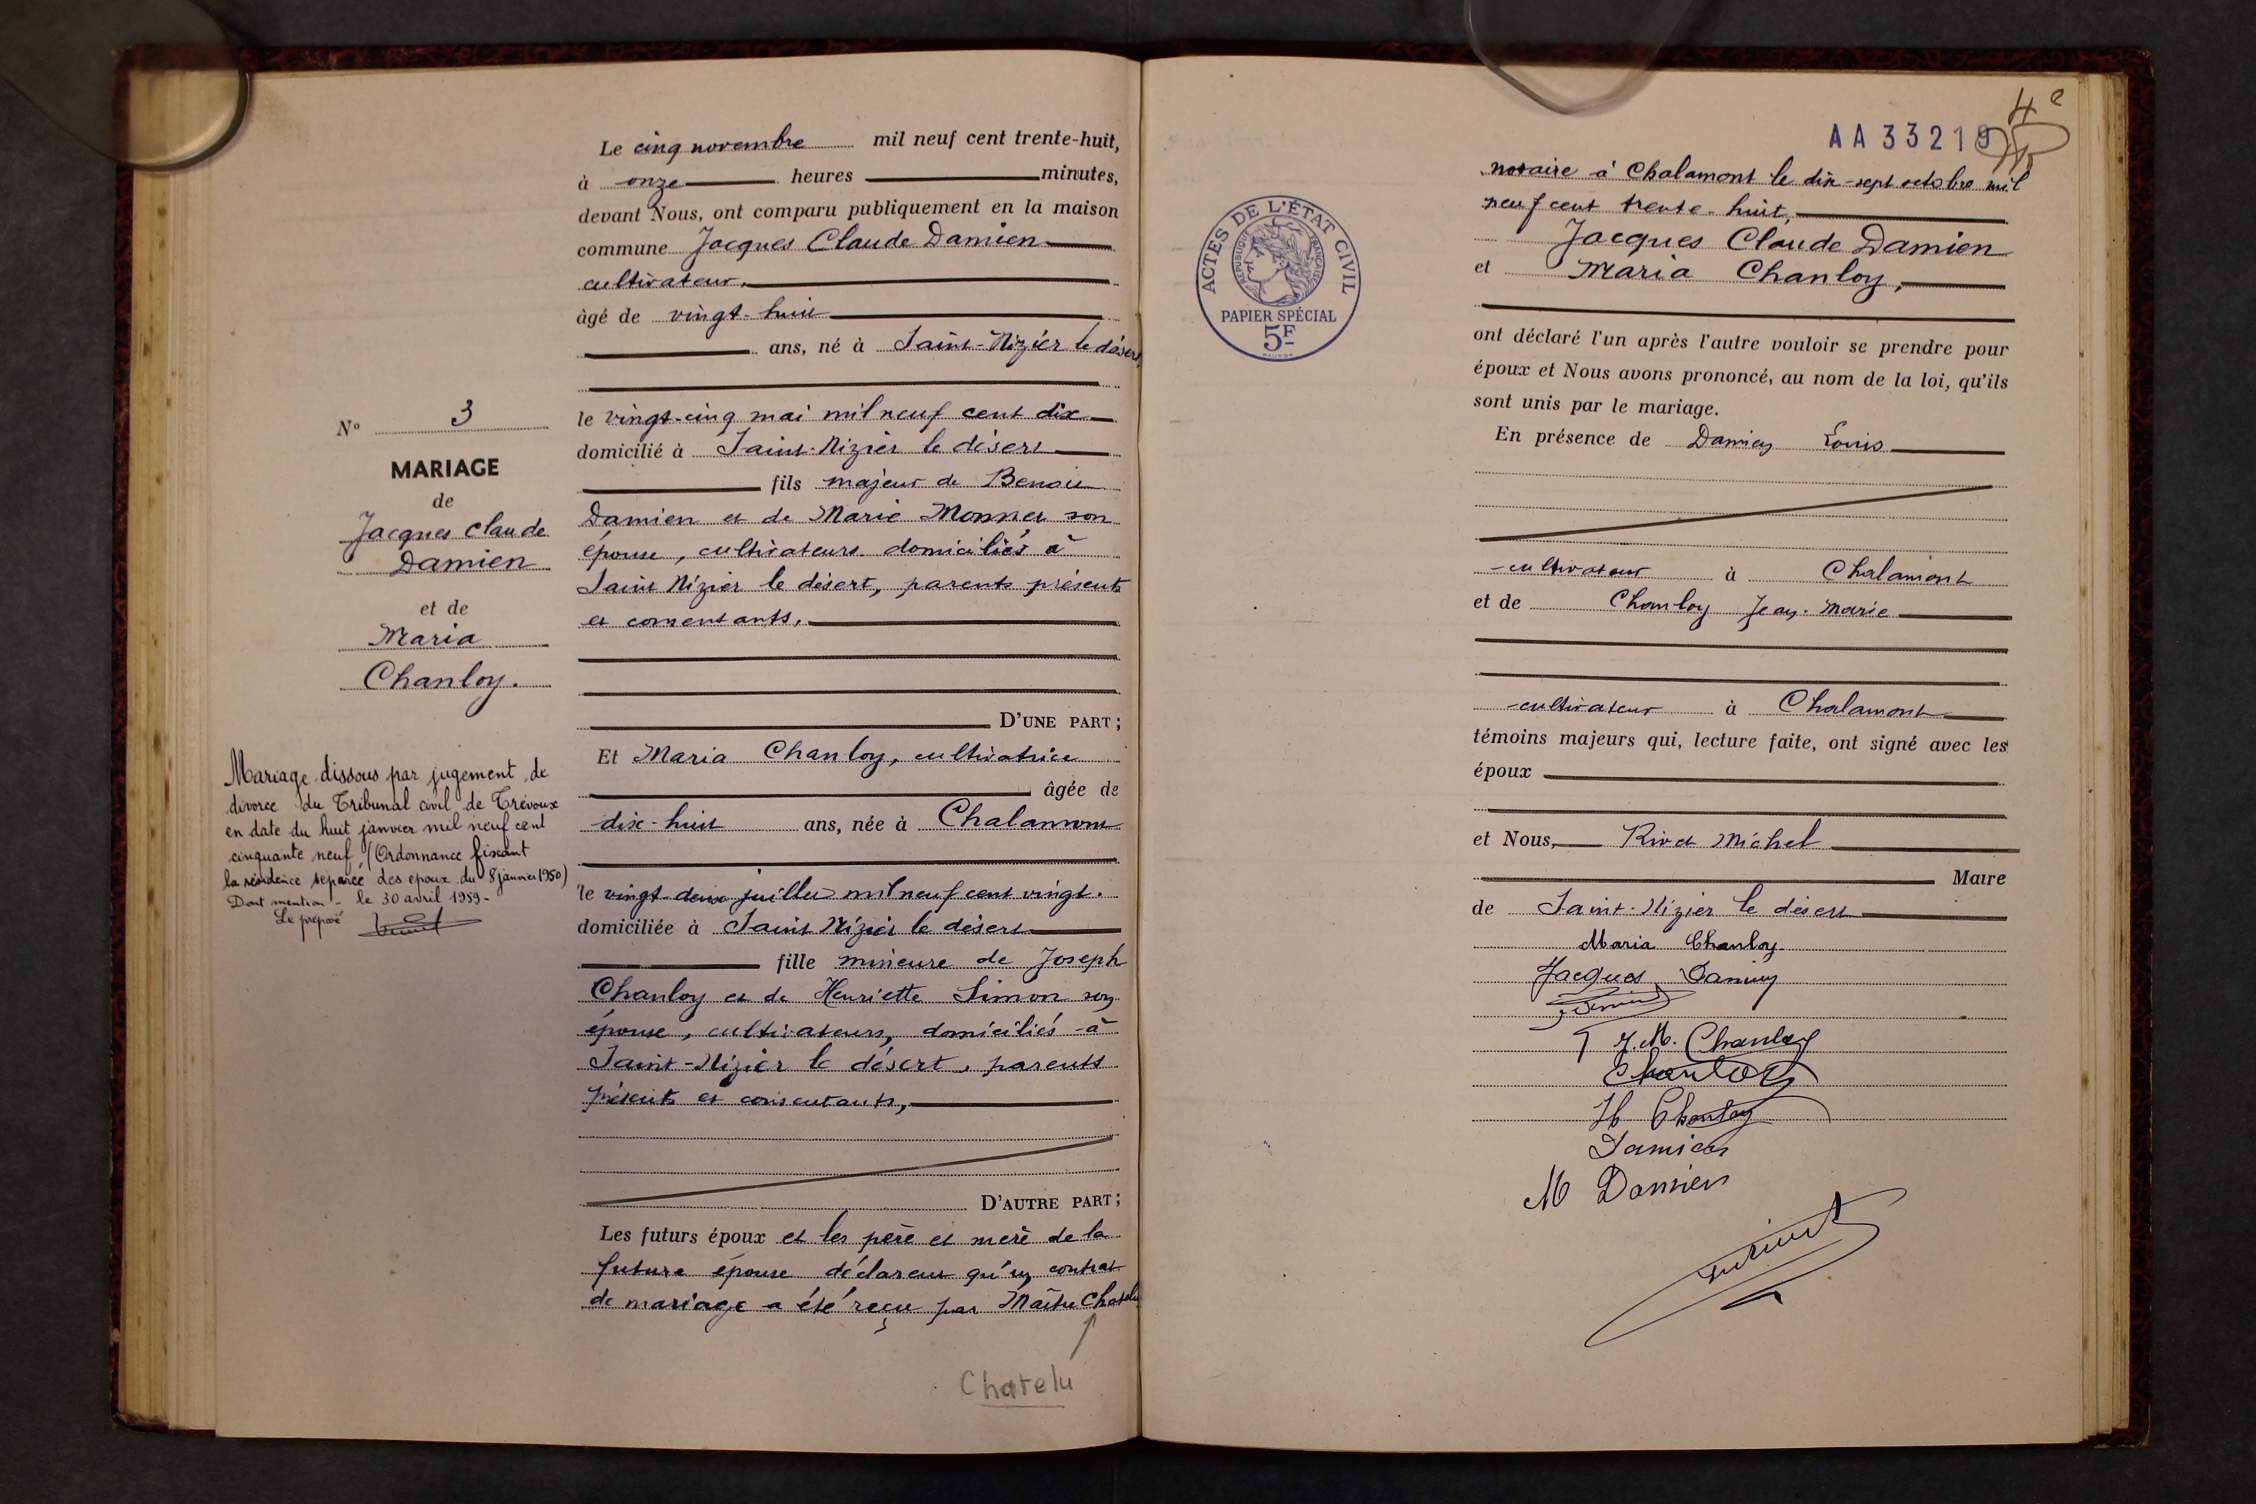 N° 3
MARIAGE
de
Jacques Claude
Damien
et de
Maria
Chanloy.
Mariage dissous par jugement de
divorce du Tribunal civil de Trévoux
en date du huit janvier mil neuf cent
cinquante neuf. (Ordonnance fixant
la résidence séparée des époux du 8 janvier 1950)
Dont mention - le 30 avril 1959 -
Le préposé
Le cinq novembre mil neuf cent trente-huit,
à onze heures minutes,
devant Nous, ont comparu publiquement en la maison
commune Jacques Claude Damien
cultivateur,
âgé de vingt-huit
ans, né à Saint-Nizier le désert
le vingt-cinq mai mil neuf cent dix
domicilié à Saint-Nizier le désert
fils majeur de Benoit
Damien et de Marie Monner son
épouse, cultivateurs domiciliés à
Saint Nizier le désert, parents présents
et consentants,
D'UNE PART;
Et Maria Chanloy, cultivatrice
âgée de
dix-huit ans, née à Chalamont
le vingt-deux juillet mil neuf cent vingt.
domiciliée à Saint Nizier le désert
fille mineure de Joseph
Chanloy et de Henriette Simon son
épouse, cultivateurs, domiciliés à
Saint-Nizier le désert, parents
présents et consentants,
D'AUTRE PART;
Les futurs époux et les père et mère de la
future épouse déclarent qu'un contrat
de mariage a été reçu par Maître Chatelu
Chatelu
4e
AA 33219
ACTES DE L'ÉTAT CIVIL
RÉPUBLIQUE FRANÇAISE
PAPIER SPÉCIAL
5F
notaire à Chalamont le dix-sept octobre mil
neuf cent trente-huit,
Jacques Claude Damien
et Maria Chanloy,
ont déclaré l'un après l'autre vouloir se prendre pour
époux et Nous avons prononcé, au nom de la loi, qu'ils
sont unis par le mariage.
En présence de Damien Louis
cultivateur à Chalamont
et de Chanloy Jean-Marie
cultivateur à Chalamont
témoins majeurs qui, lecture faite, ont signé avec les
époux
et Nous, Rivet Michel
Maire
de Saint-Nizier le désert
Maria Chanloy
Jacques Damien
J.M. Chanloy
Chanloy
H Chanloy
Damien
M Damien